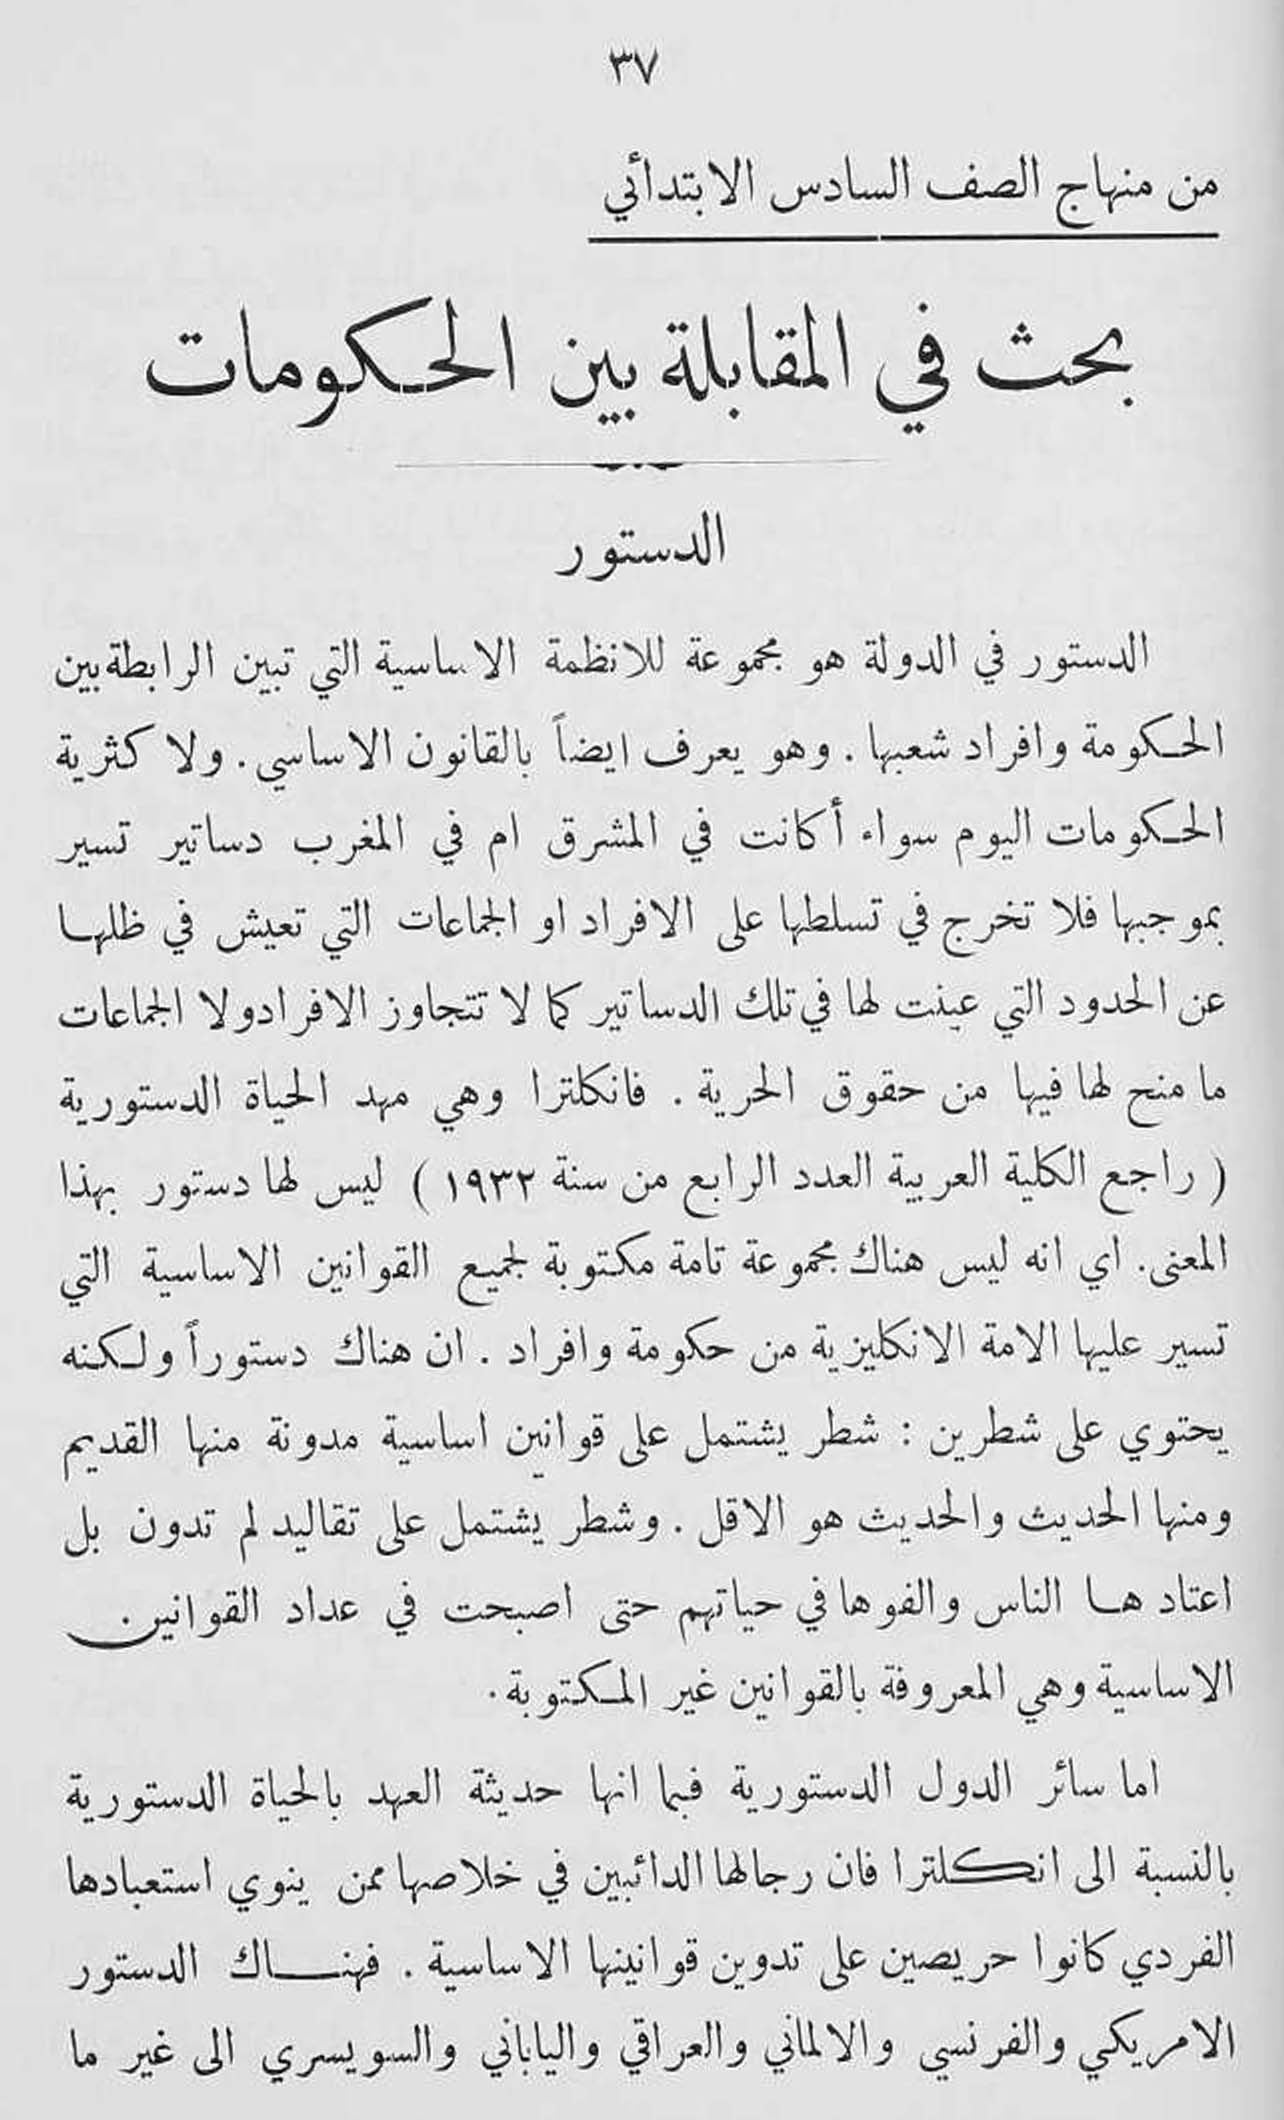 ٣٧
من منهاج الصف السادس الابتدائي
بحث في المقابلة بين الحكومات
الدستور
الدستور في الدولة هو مجموعة للانظمة الاساسية التي تبين الرابطة بين
الحكومة وافراد شعبها . وهو يعرف ايضاً بالقانون الاساسي . ولا كثرية
الحكومات اليوم سواء أكانت في المشرق ام في المغرب دساتير تسير
بموجبها فلا تخرج في تسلطها على الافراد او الجماعات التي تعيش في ظلها
عن الحدود التي عينت لها في تلك الدساتير كما لا تتجاوز الافراد ولا الجماعات
ما منح لها فيها من حقوق الحرية . فانكلترا وهي مهد الحياة الدستورية
( راجع الكلية العربية العدد الرابع من سنة ١٩٣٢ ) ليس لها دستور بهذا
المعنى . اي انه ليس هناك مجموعة تامة مكتوبة لجميع القوانين الاساسية التي
تسير عليها الامة الانكليزية من حكومة وافراد . ان هناك دستوراً ولكنه
يحتوي على شطرين : شطر يشتمل على قوانين اساسية مدونة منها القديم
ومنها الحديث والحديث هو الاقل . وشطر يشتمل على تقاليد لم تدون بل
اعتادها الناس والفوها في حياتهم حتى اصبحت في عداد القوانين
الاساسية وهي المعروفة بالقوانين غير المكتوبة .
اما سائر الدول الدستورية فبما انها حديثة العهد بالحياة الدستورية
بالنسبة الى انكلترا فان رجالها الدائبين في خلاصها ممن ينوي استعبادها
الفردي كانوا حريصين على تدوين قوانينها الاساسية . فهناك الدستور
الامريكي والفرنسي والالماني والعراقي والياباني والسويسري الى غير ما